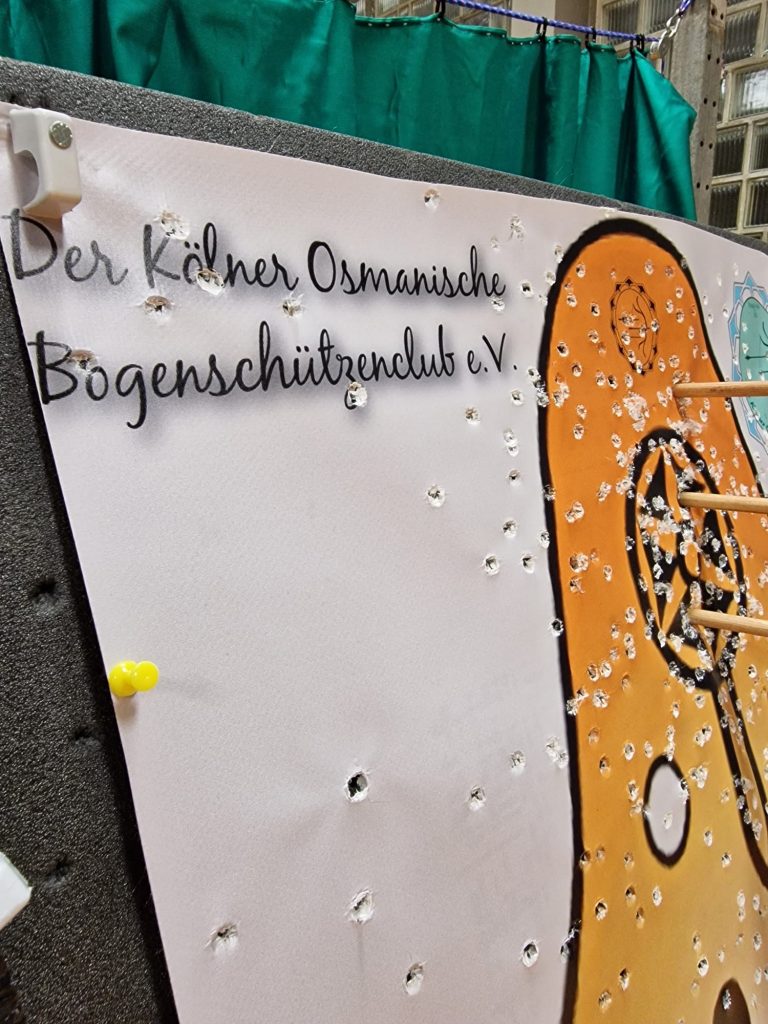 Der Kölner Osmanische
Bogenschützenclub e.V.